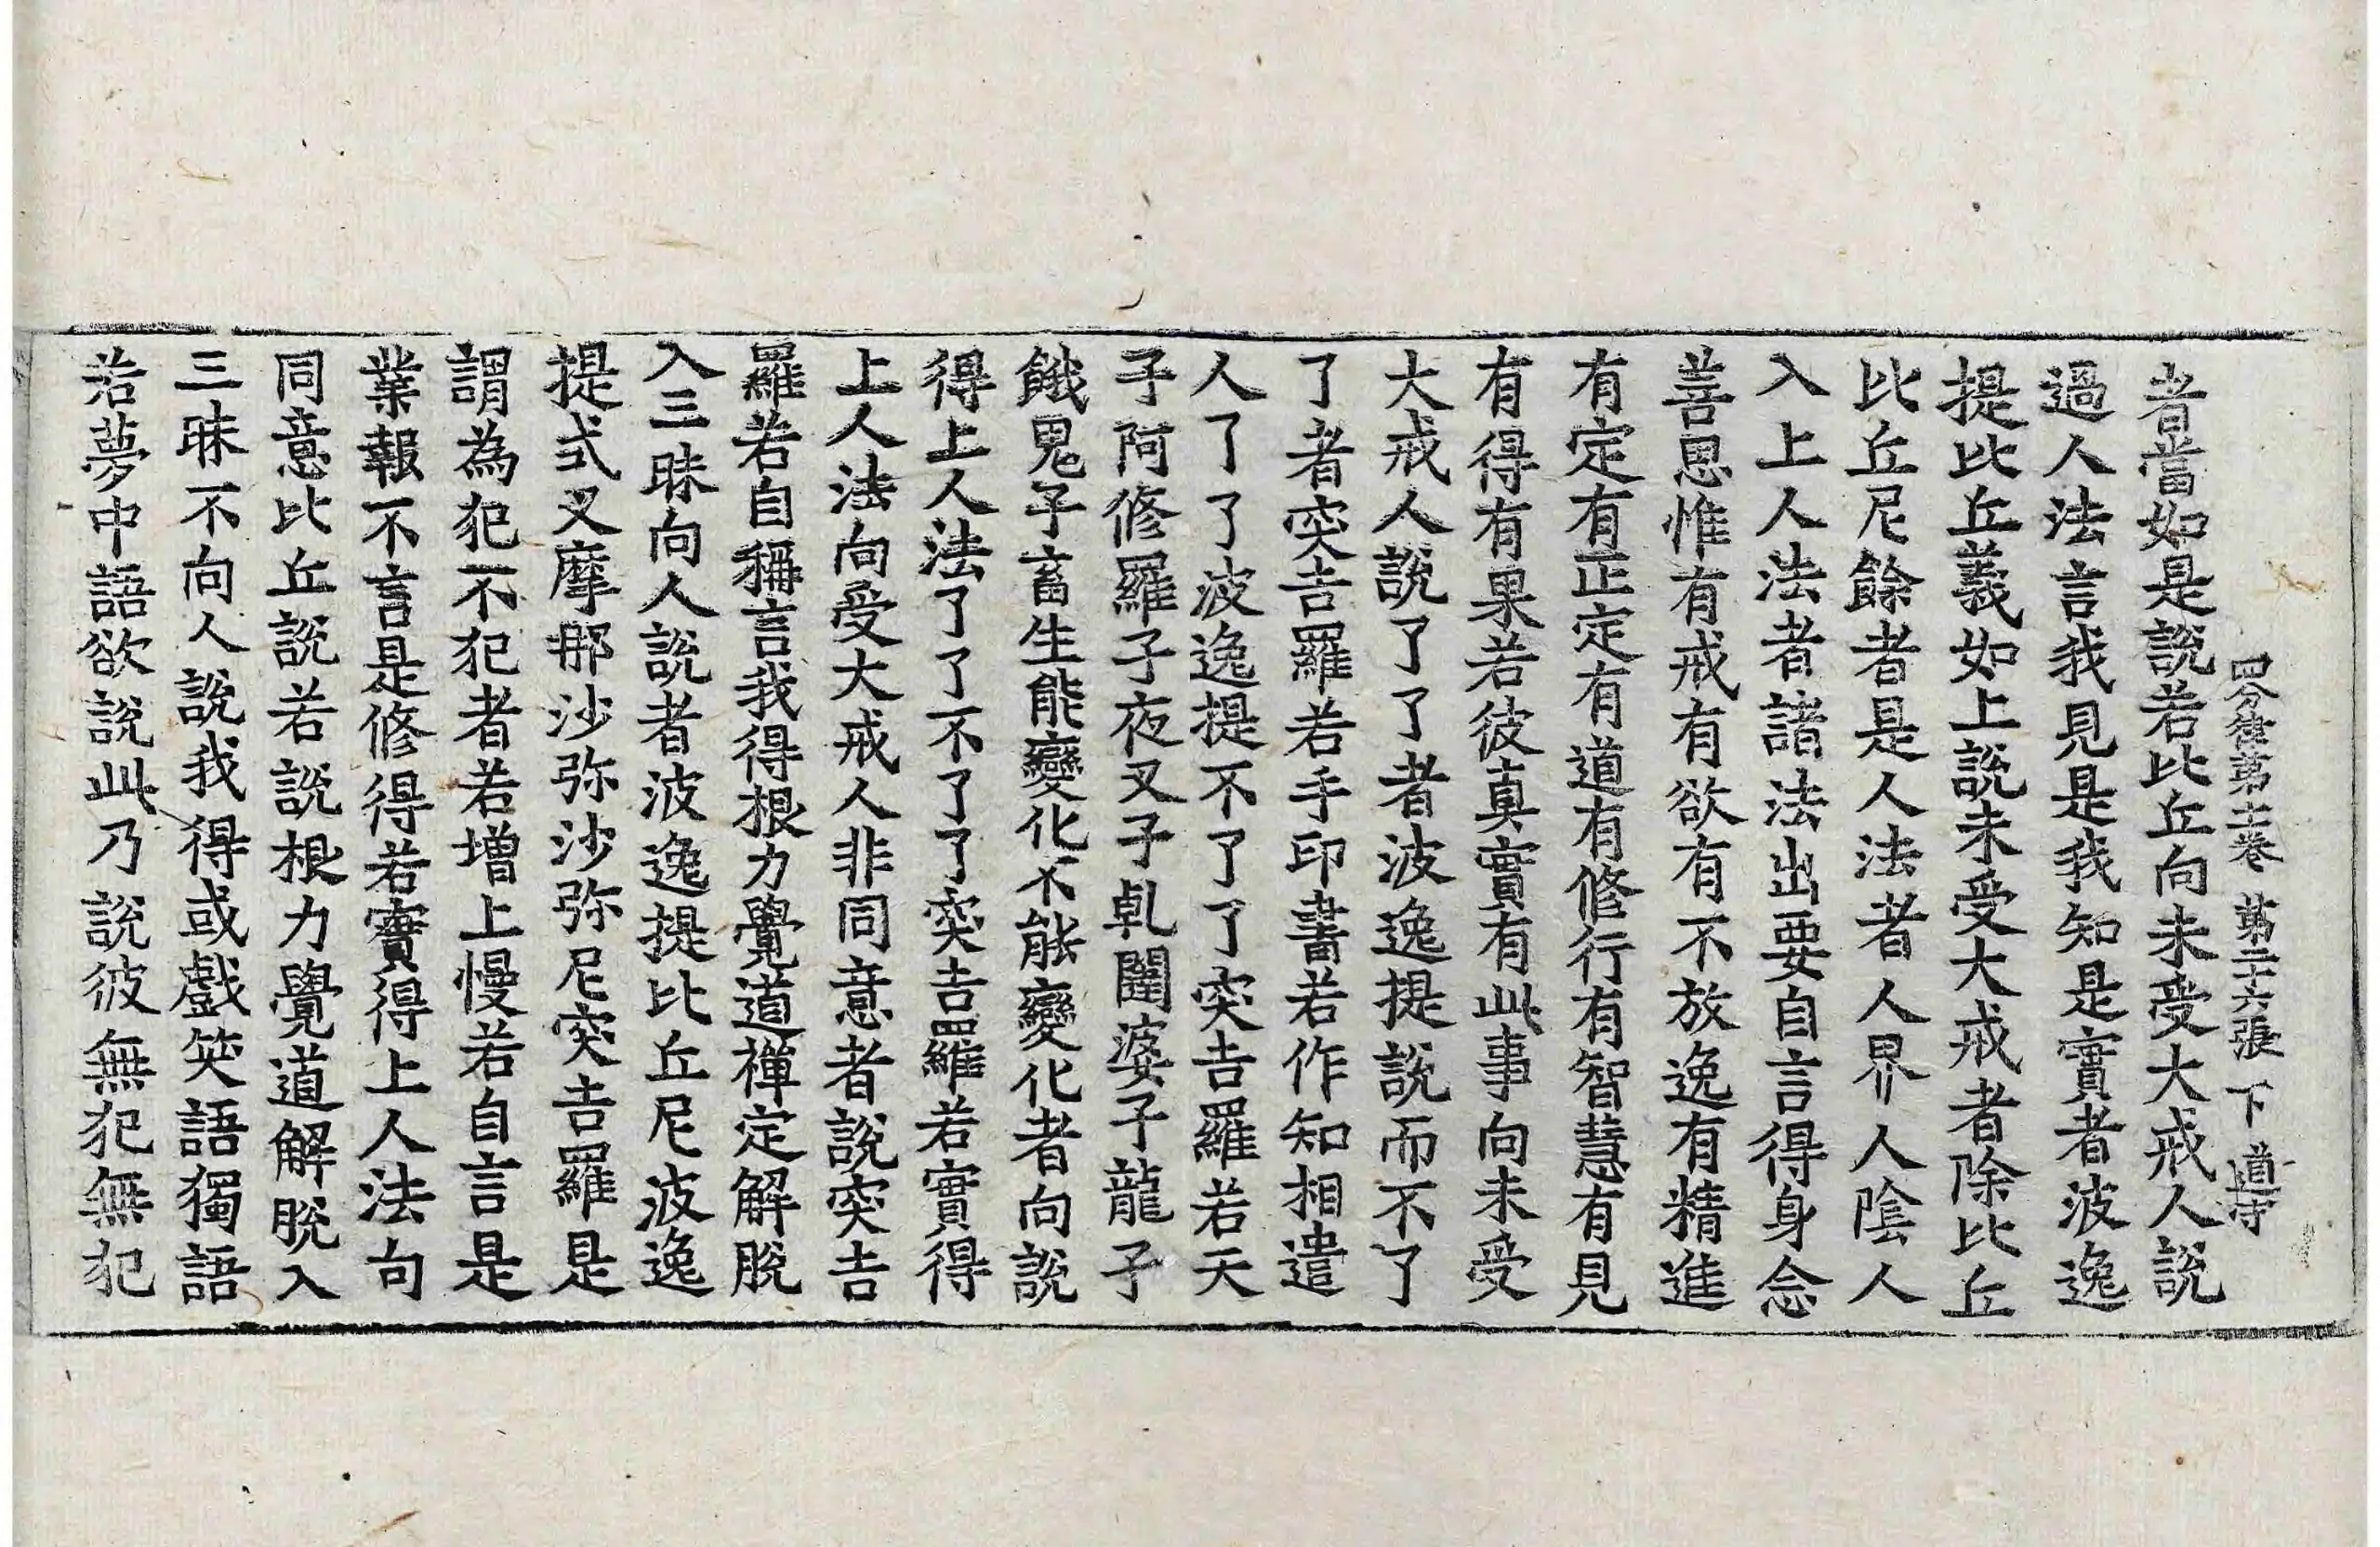 四分律第十一卷 第二十六張 下 道守
者當如是說若比丘向未受大戒人說
過人法言我見是我知是實者波逸
提比丘義如上說未受大戒者除比丘
比丘尼餘者是人法者人界人陰人
入上人法者諸法出要自言得身念
善思惟有戒有欲有不放逸有精進
有定有正定有道有修行有智慧有見
有得有果若彼真實有此事向未受
大戒人說了了者波逸提說而不了
了者突吉羅若手印書若作知相遣
人了了波逸提不了了突吉羅若天
子阿修羅子夜叉子乹闥婆子龍子
餓鬼子畜生能變化不能變化者向說
得上人法了了不了了突吉羅若實得
上人法向受大戒人非同意者說突吉
羅若自稱言我得根力覺道禪定解脫
入三昧向人說者波逸提比丘尼波逸
提式叉摩那沙弥沙弥尼突吉羅是
謂為犯不犯者若增上慢若自言是
業報不言是修得若實得上人法向
同意比丘說若說根力覺道解脫入
三昧不向人說我得或戲笑語獨語
若夢中語欲說此乃說彼無犯無犯